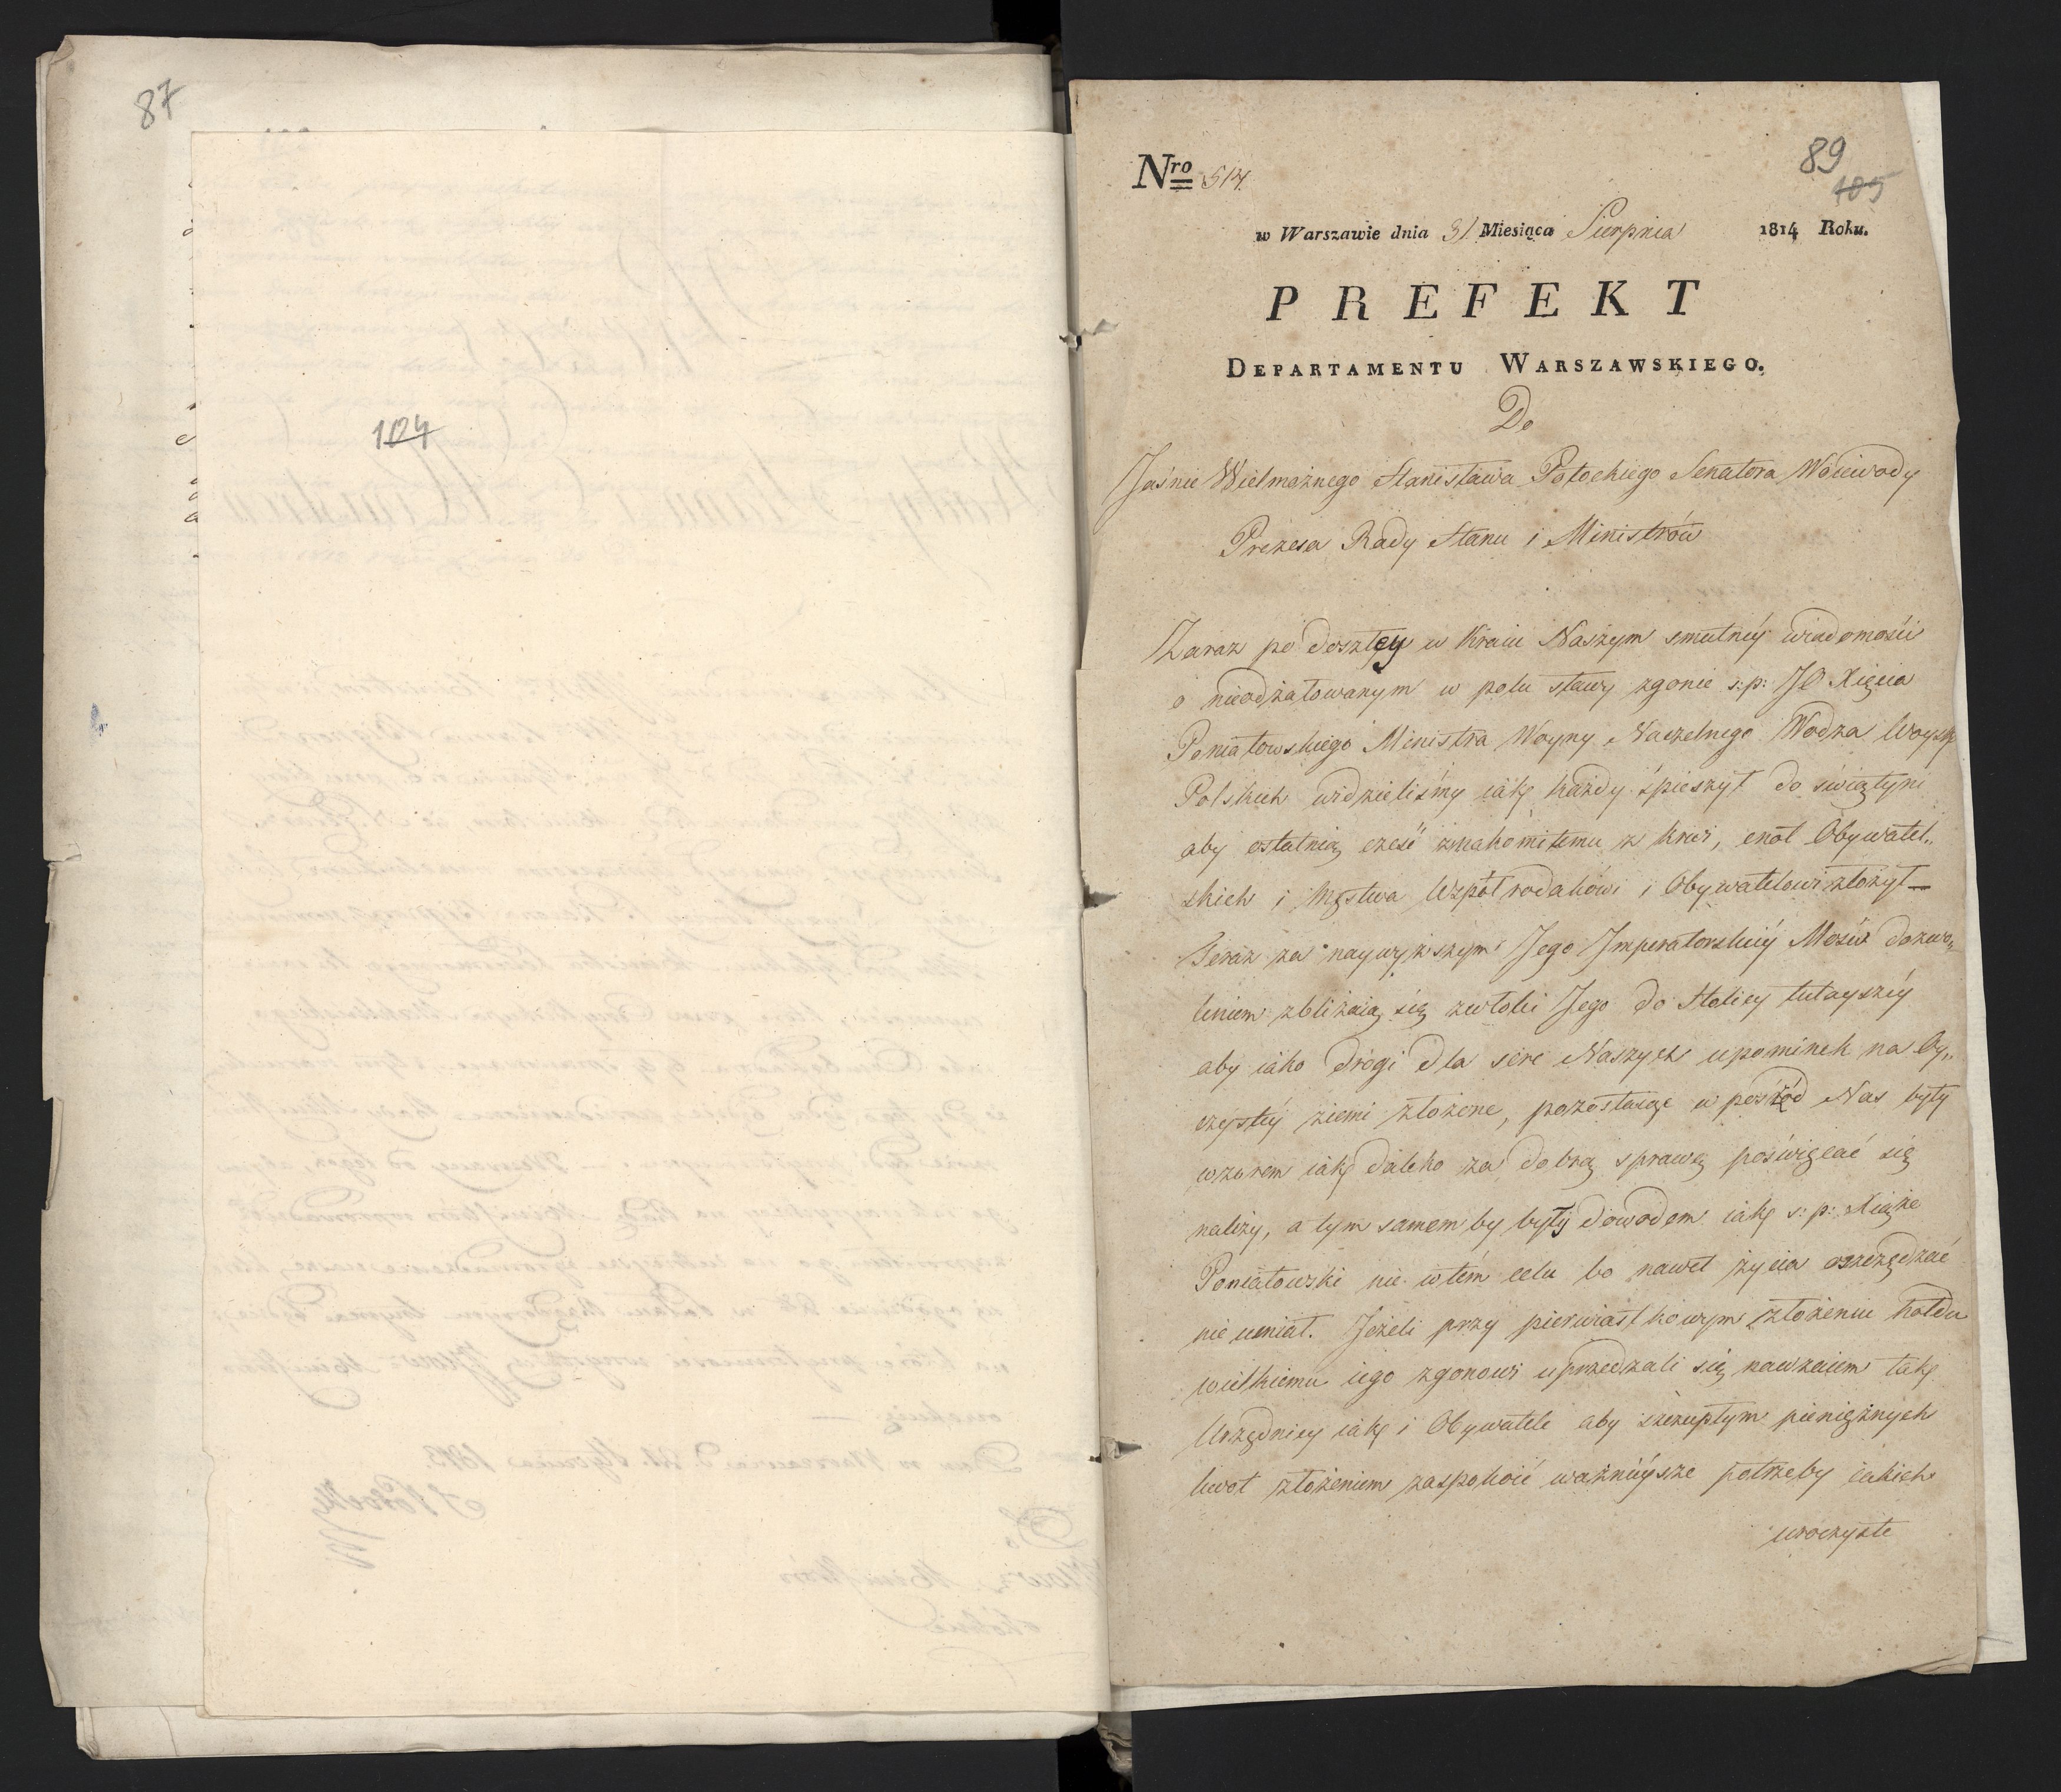 87
104
89
105
Nro 514.
w Warszawie dnia 31 Miesiąca Sierpnia 1814 Roku.
PREFEKT
DEPARTAMENTU WARSZAWSKIEGO.
Do
Jaśnie Wielmożnego Stanisława Potockiego Senatora Woiewody
Prezesa Rady Stanu i Ministrów
Zaraz po doszłey w Kraiu Naszym smutnéy wiadomości
o nieodżałowanym w polu sławy zgonie ś: p: JO Xięcia
Poniatowskiego Ministra Woyny Naczelnego Wodza Woysk
Polskich widzieliśmy iak każdy śpieszył do świątyni
aby ostatnią cześć znakomitemu z krwi, cnót Obywatel„
skich i męstwa Współrodakowi i Obywatelowi złożył —
Teraz za naywyższym Jego Imperatorskiéy Mości dozwo„
leniem zbliżaią się zwłoki Jego do Stolicy tutayszéy
aby iako drogi dla serc Naszych upominek na Oy„
czystéy ziemi złożone, pozostaiąc w pośród Nas były
wzorem iak daleko za dobrą sprawę poświęcać się
należy, a tym samem by były dowodem iak ś: p: Xiąże
Poniatowski nic w tém celu bo nawet życia oszczędzać
nie umiał. Jeżeli przy pierwiastkowym złożeniu hołdu
wielkiemu iego zgonowi uprzedzali się nawzaiem tak
Urzędnicy iak i Obywatele aby szczupłym pieniężnych
kwot złożeniem zaspokoić ważniéysze potrzeby iakich
uroczyste